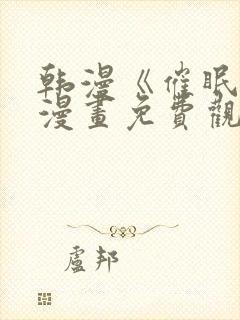 韩漫《催眠
漫畫免費觀
盧邦